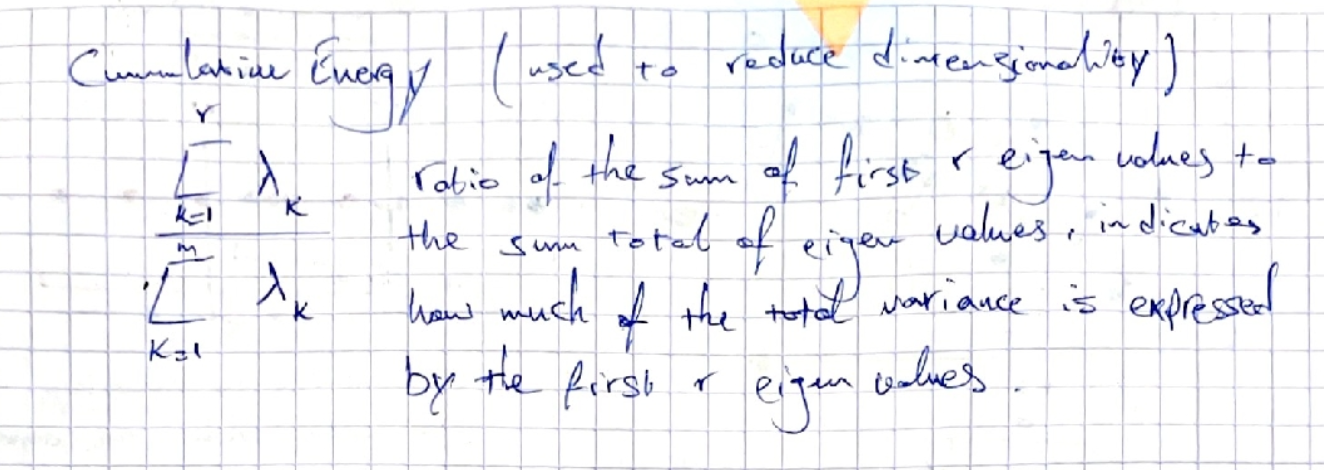 Cummulative Energy (used to reduce dimensionality)
r
∑ λ_k
k=1
m
∑ λ_k
k=1
ratio of the sum of first r eigen values to
the sum total of eigen values, indicates
how much of the total variance is expressed
by the first r eigen values.